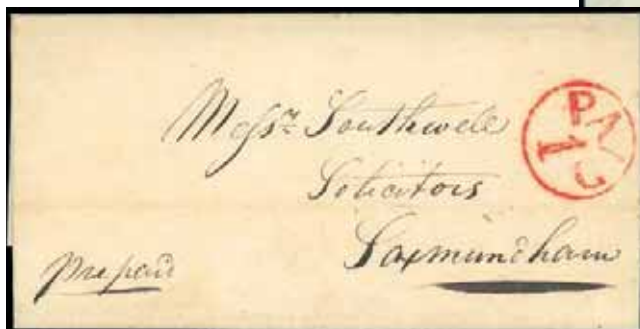 Messrs. Southwell
Solicitors
Saxmundham
prepaid
PAID
1